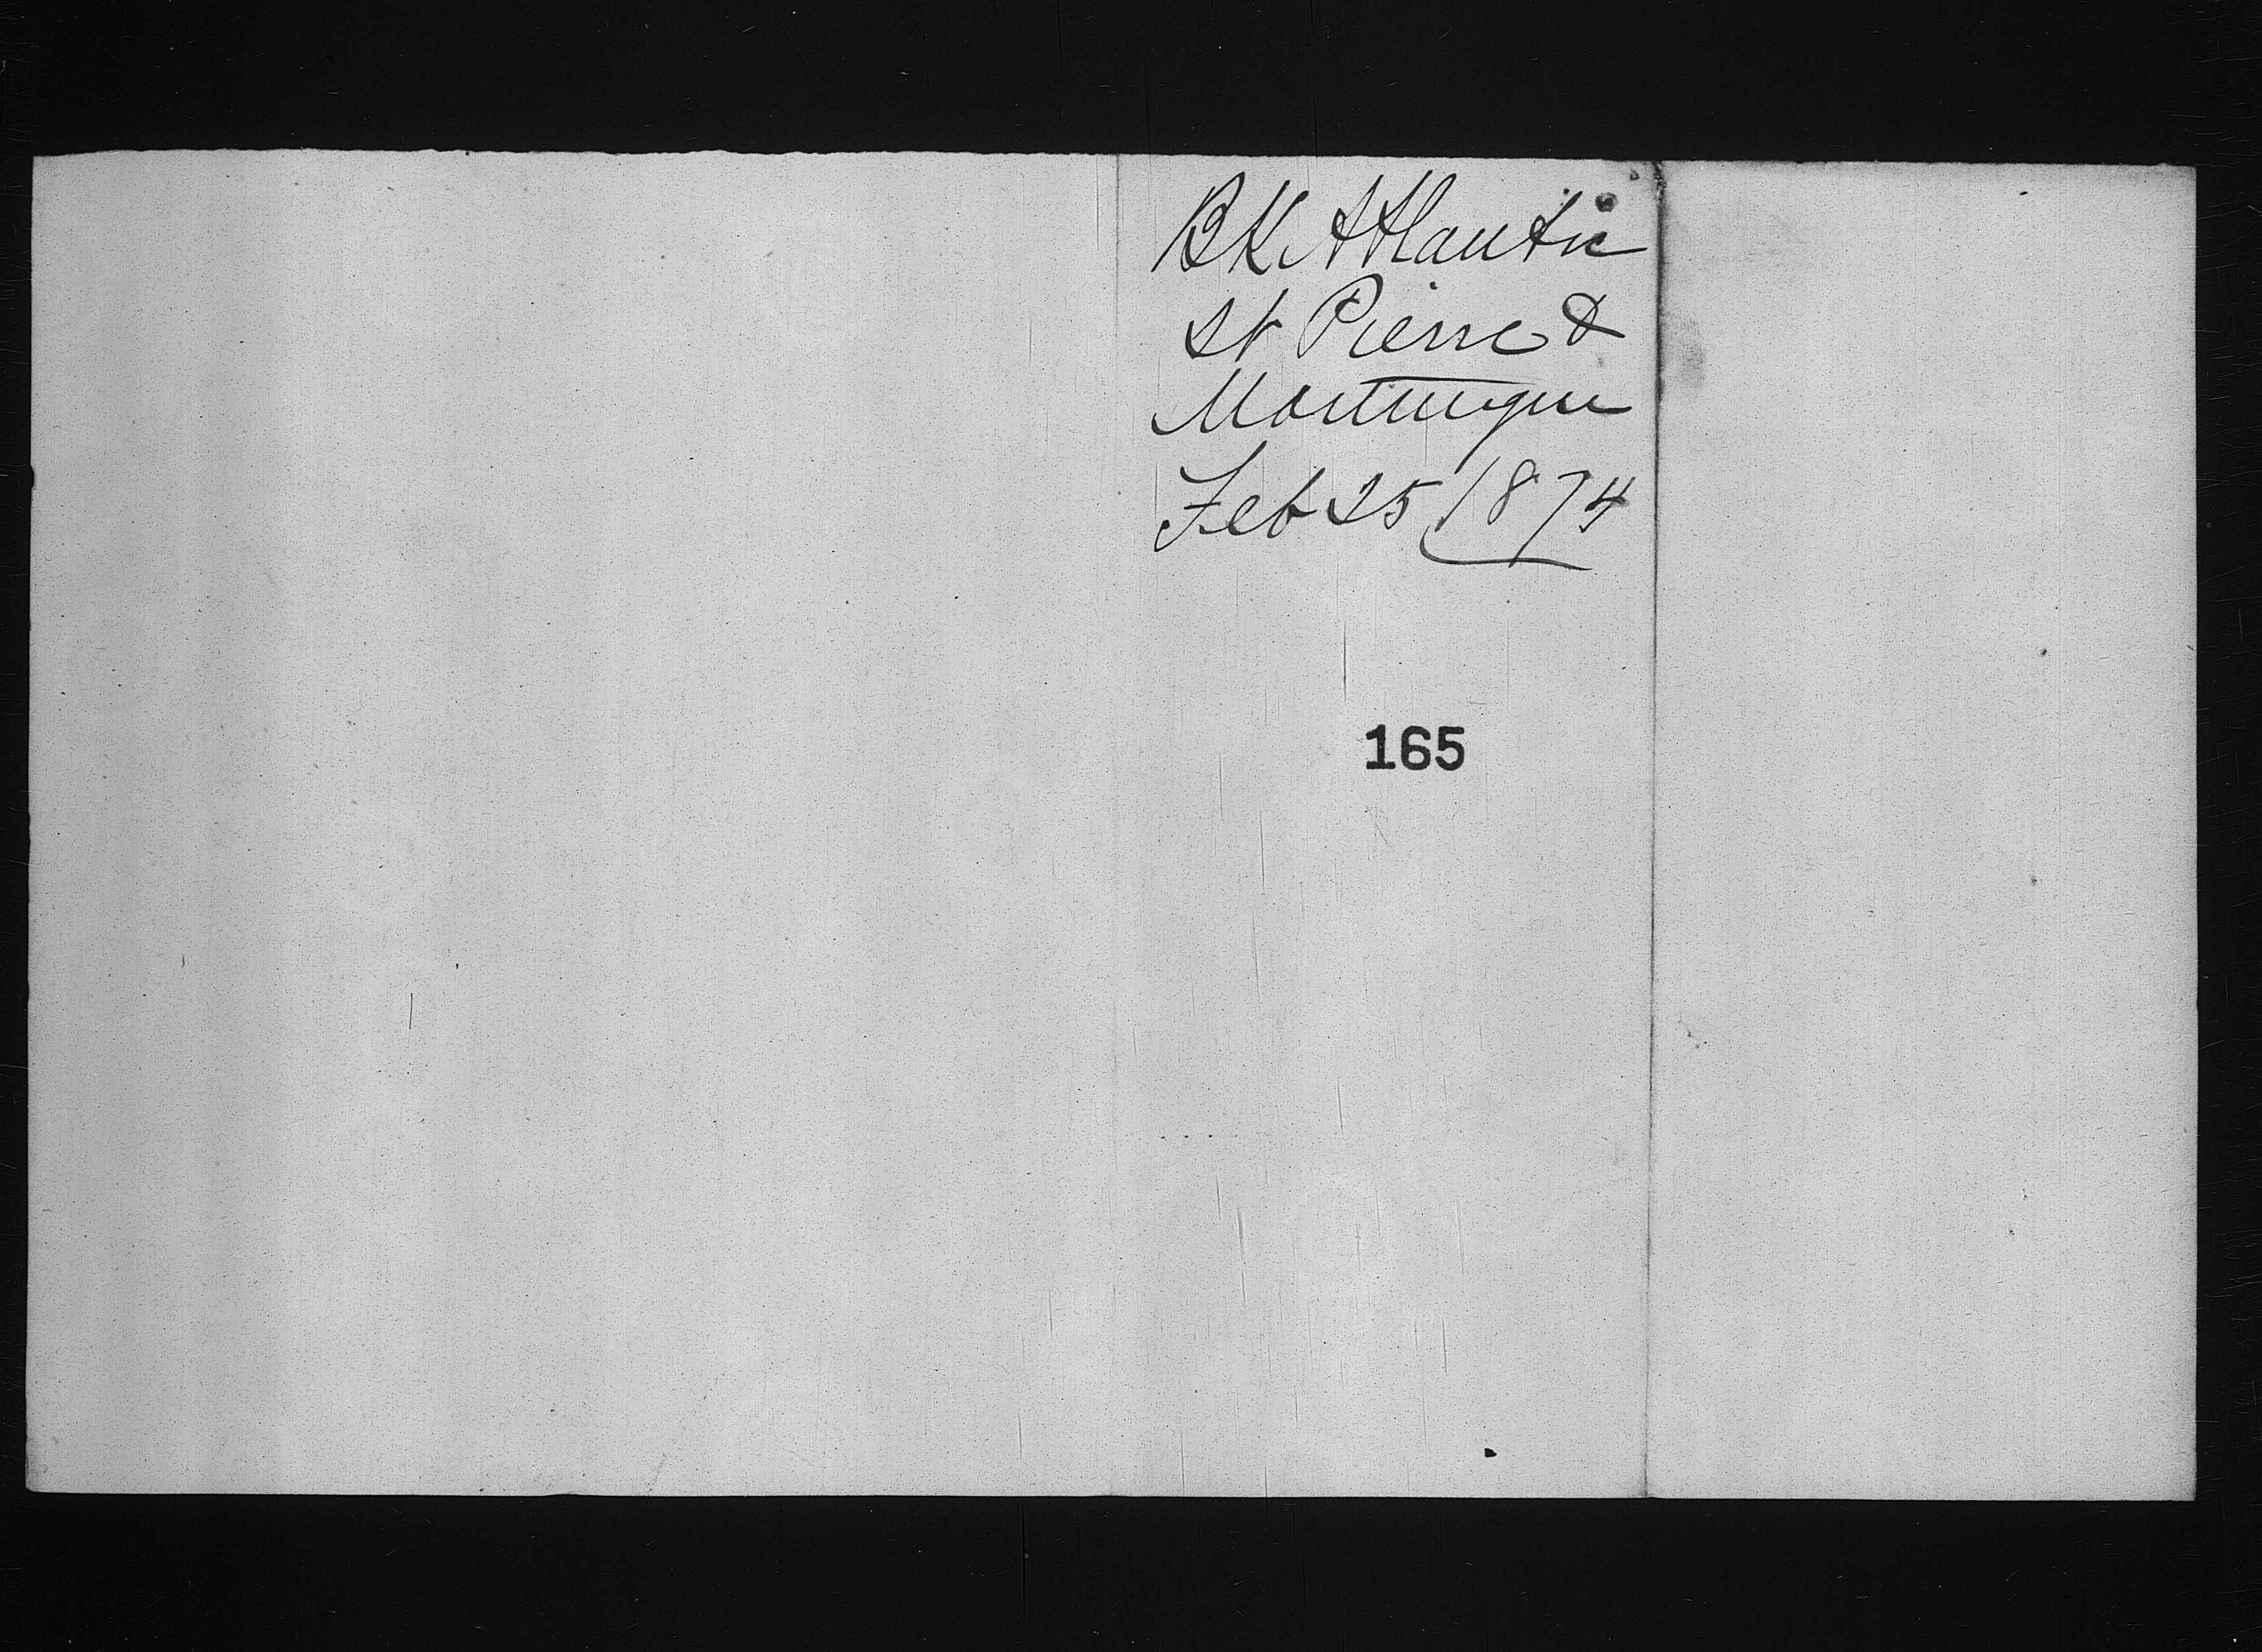 BK Atlantic
St Pierre &
Martinique
Feb 25 1874
165